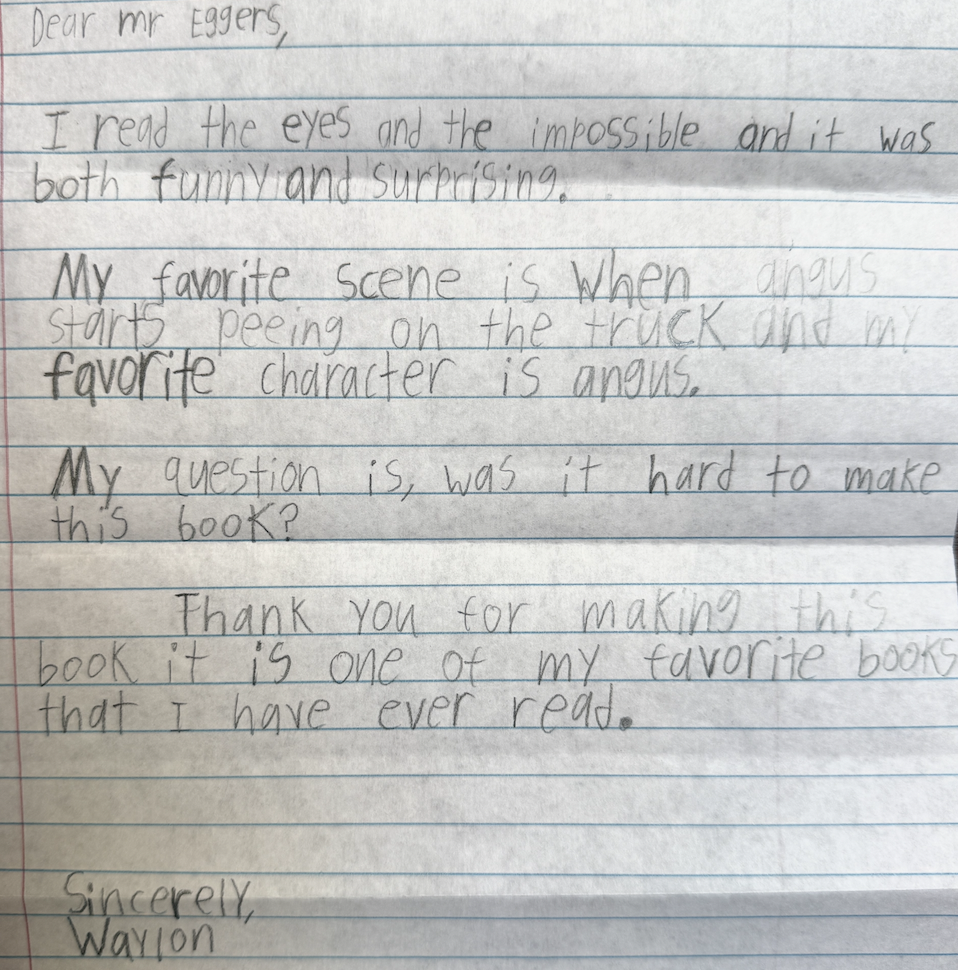 Dear mr Eggers,
I read the eyes and the impossible and it was
both funny and surprising.
My favorite scene is when angus
starts peeing on the truck and my
favorite character is angus.
My question is, was it hard to make
this book?
Thank you for making this
book it is one of my favorite books
that I have ever read.
Sincerely,
Waylon